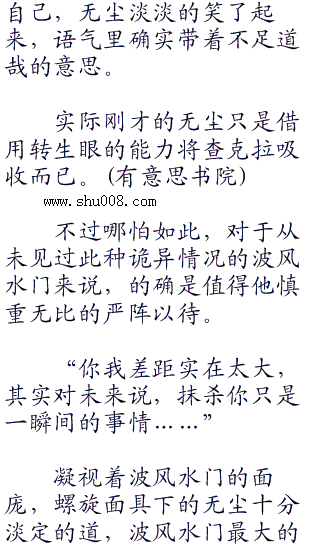 自己，无尘淡淡的笑了起
来，语气里确实带着不足道
哉的意思。
实际刚才的无尘只是借
用转生眼的能力将查克拉吸
收而已。(有意思书院)
www.shu008.com
不过哪怕如此，对于从
未见过此种诡异情况的波风
水门来说，的确是值得他慎
重无比的严阵以待。
“你我差距实在太大，
其实对未来说，抹杀你只是
一瞬间的事情……”
凝视着波风水门的面
庞，螺旋面具下的无尘十分
淡定的道，波风水门最大的